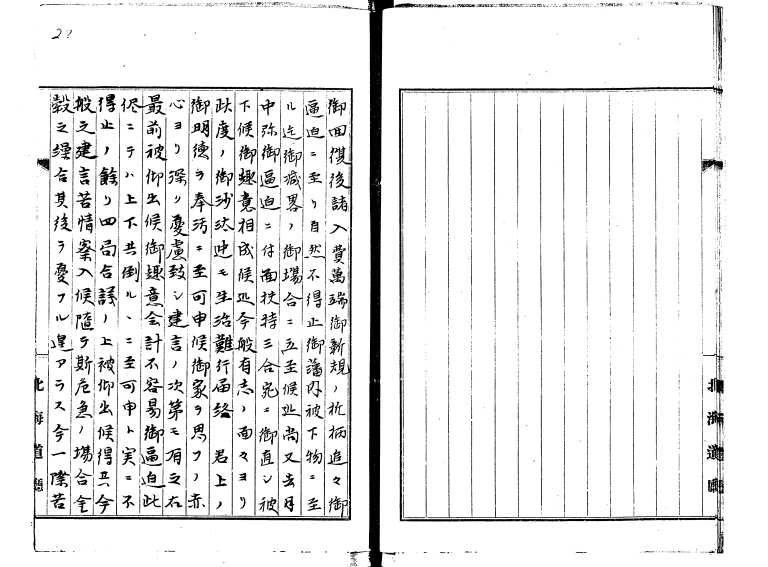 御回復後諸入費萬端御新規ノ折柄追々御
逼迫ニ至リ自然不得止御藩内被下物ニ至
ル迄御減畧ノ御場合ニ立至候処尚又去月
中弥御逼迫ニ付面扶持三合宛ニ御直シ被
下候御趣意相成候処今般有志ノ面々ヨリ
此度ノ御沙汰迚モ生活難行届絡君上ノ
御明徳ヲ奉汚ニ至可申候御家ヲ思フノ赤
心ヨリ深ク憂慮致シ建言ノ次第モ有之右
最前被仰出候御趣意会計不容易御逼迫此
侭ニテハ上下共倒ルヽニ至可申ト実ニ不
得止ノ餘リ四局合議ノ上被仰出候得共今
般之建言苦情案入候隨テ斯危急ノ場合金
穀之繰合其後ヲ憂フル遑アラス今一際苦
北海道廳
北海道廳